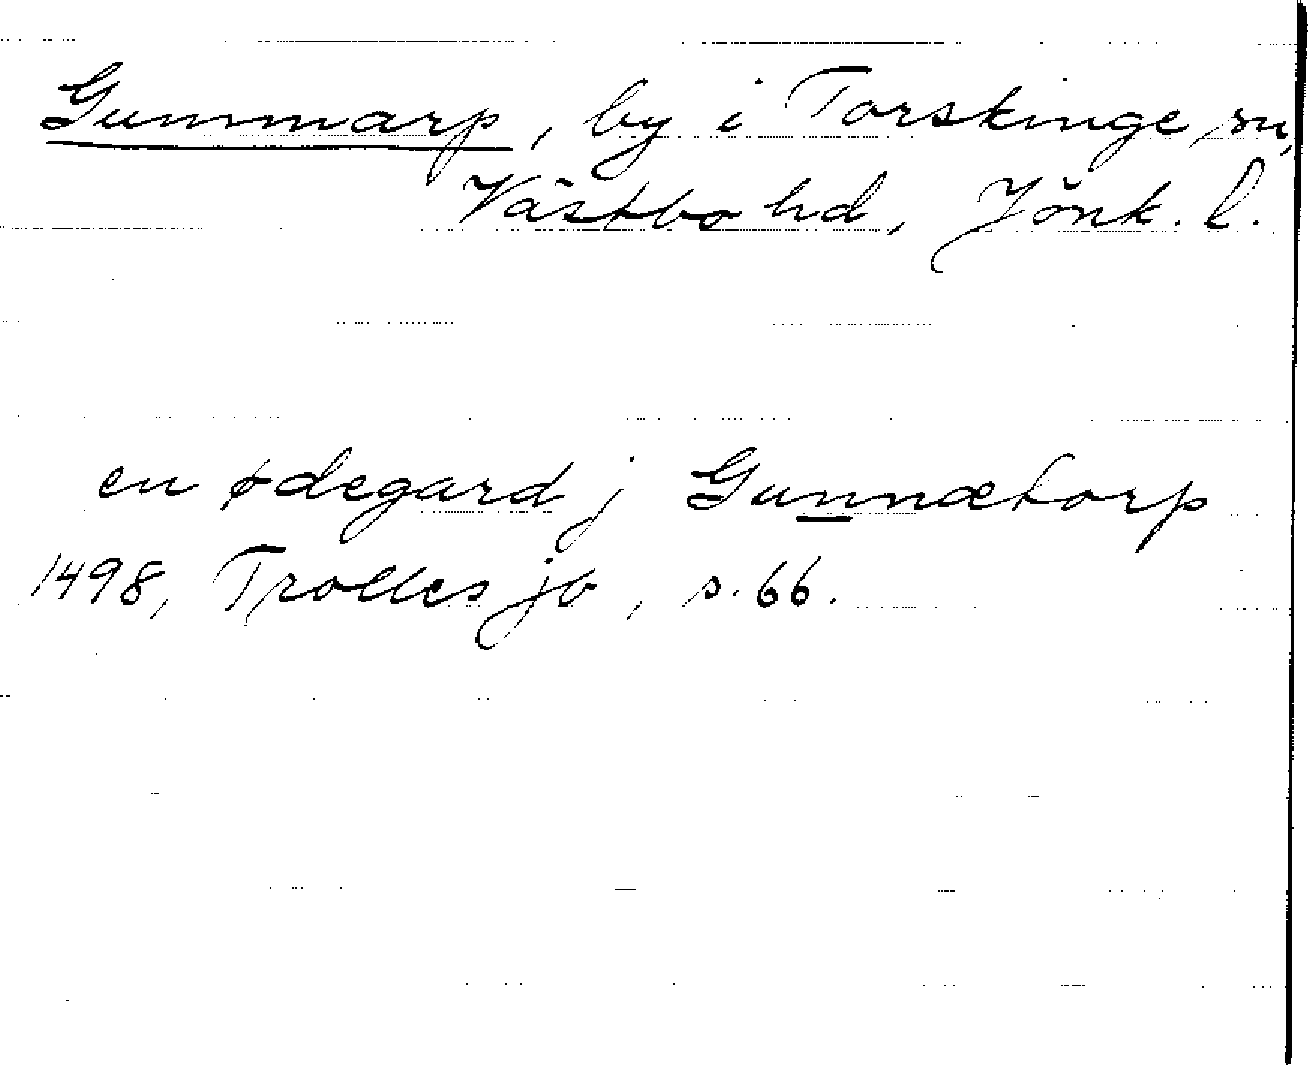 Gummarp, by i Torskinge sn,
Västbo hd, Jönk. l.
en ødegard j Gunnætorp
1498, Trolles jb, s. 66.